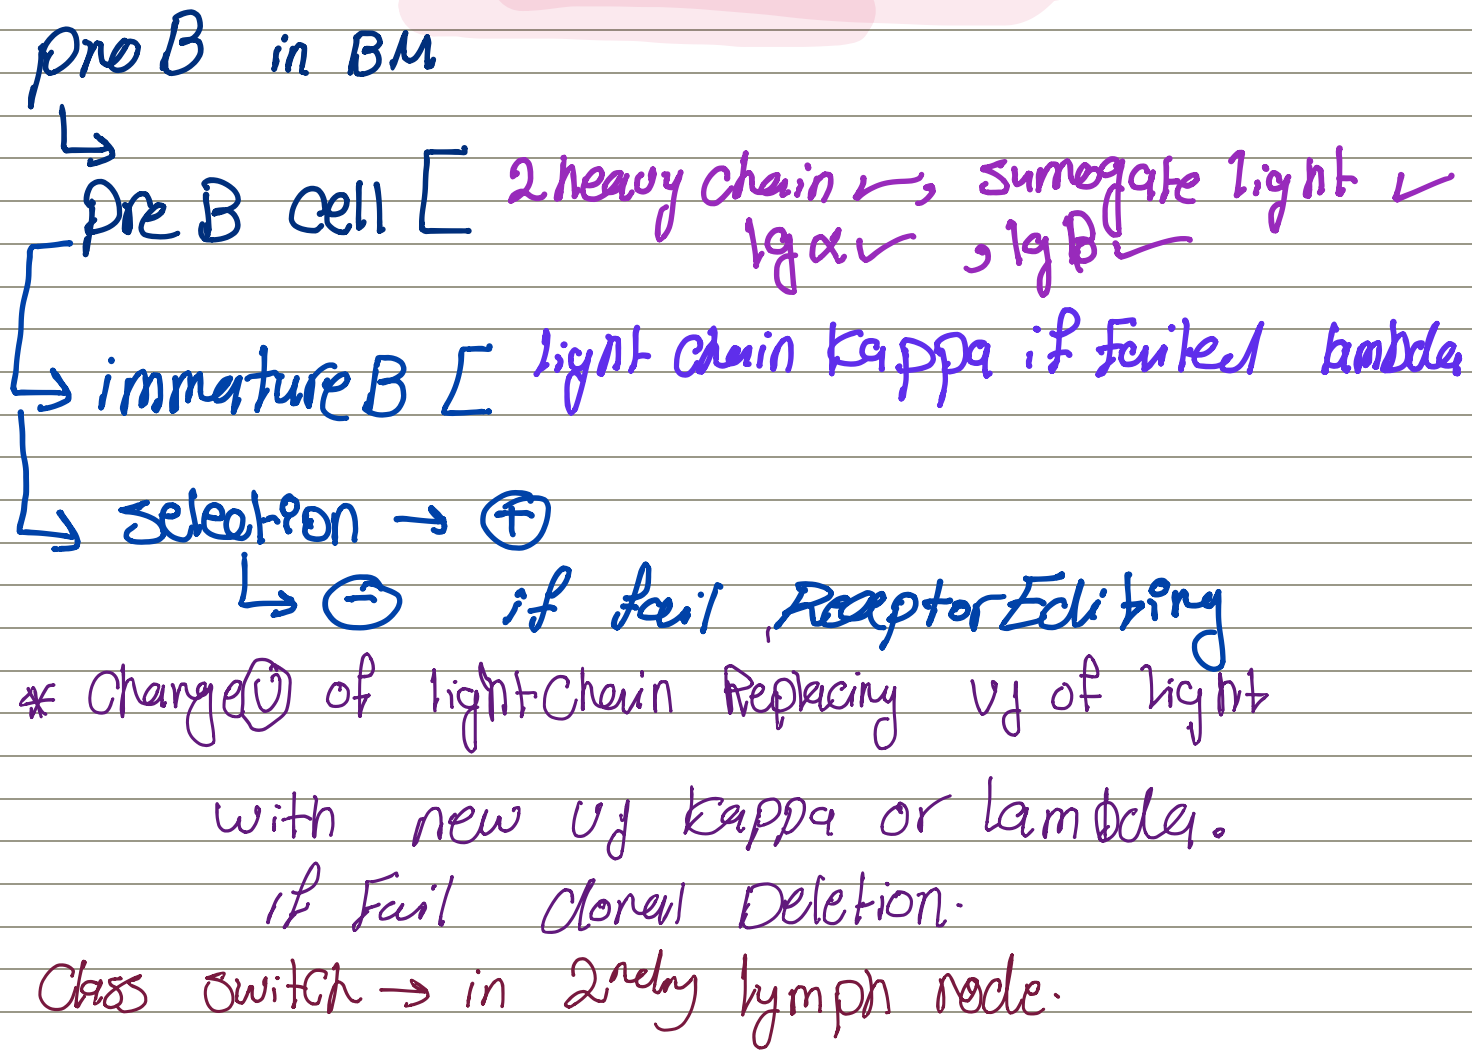 pro B in BM
pre B cell [ 2 heavy chain ✓, surrogate light ✓
Ig α ✓, Ig B ✓
immature B [ light chain kappa if failed lambda
selection → +
→ - if fail Receptor Editing
* Change U of light Chain Replacing VJ of Light
with new VJ kappa or lambda.
if Fail clonal Deletion.
Class switch → in 2ndry lymph node.